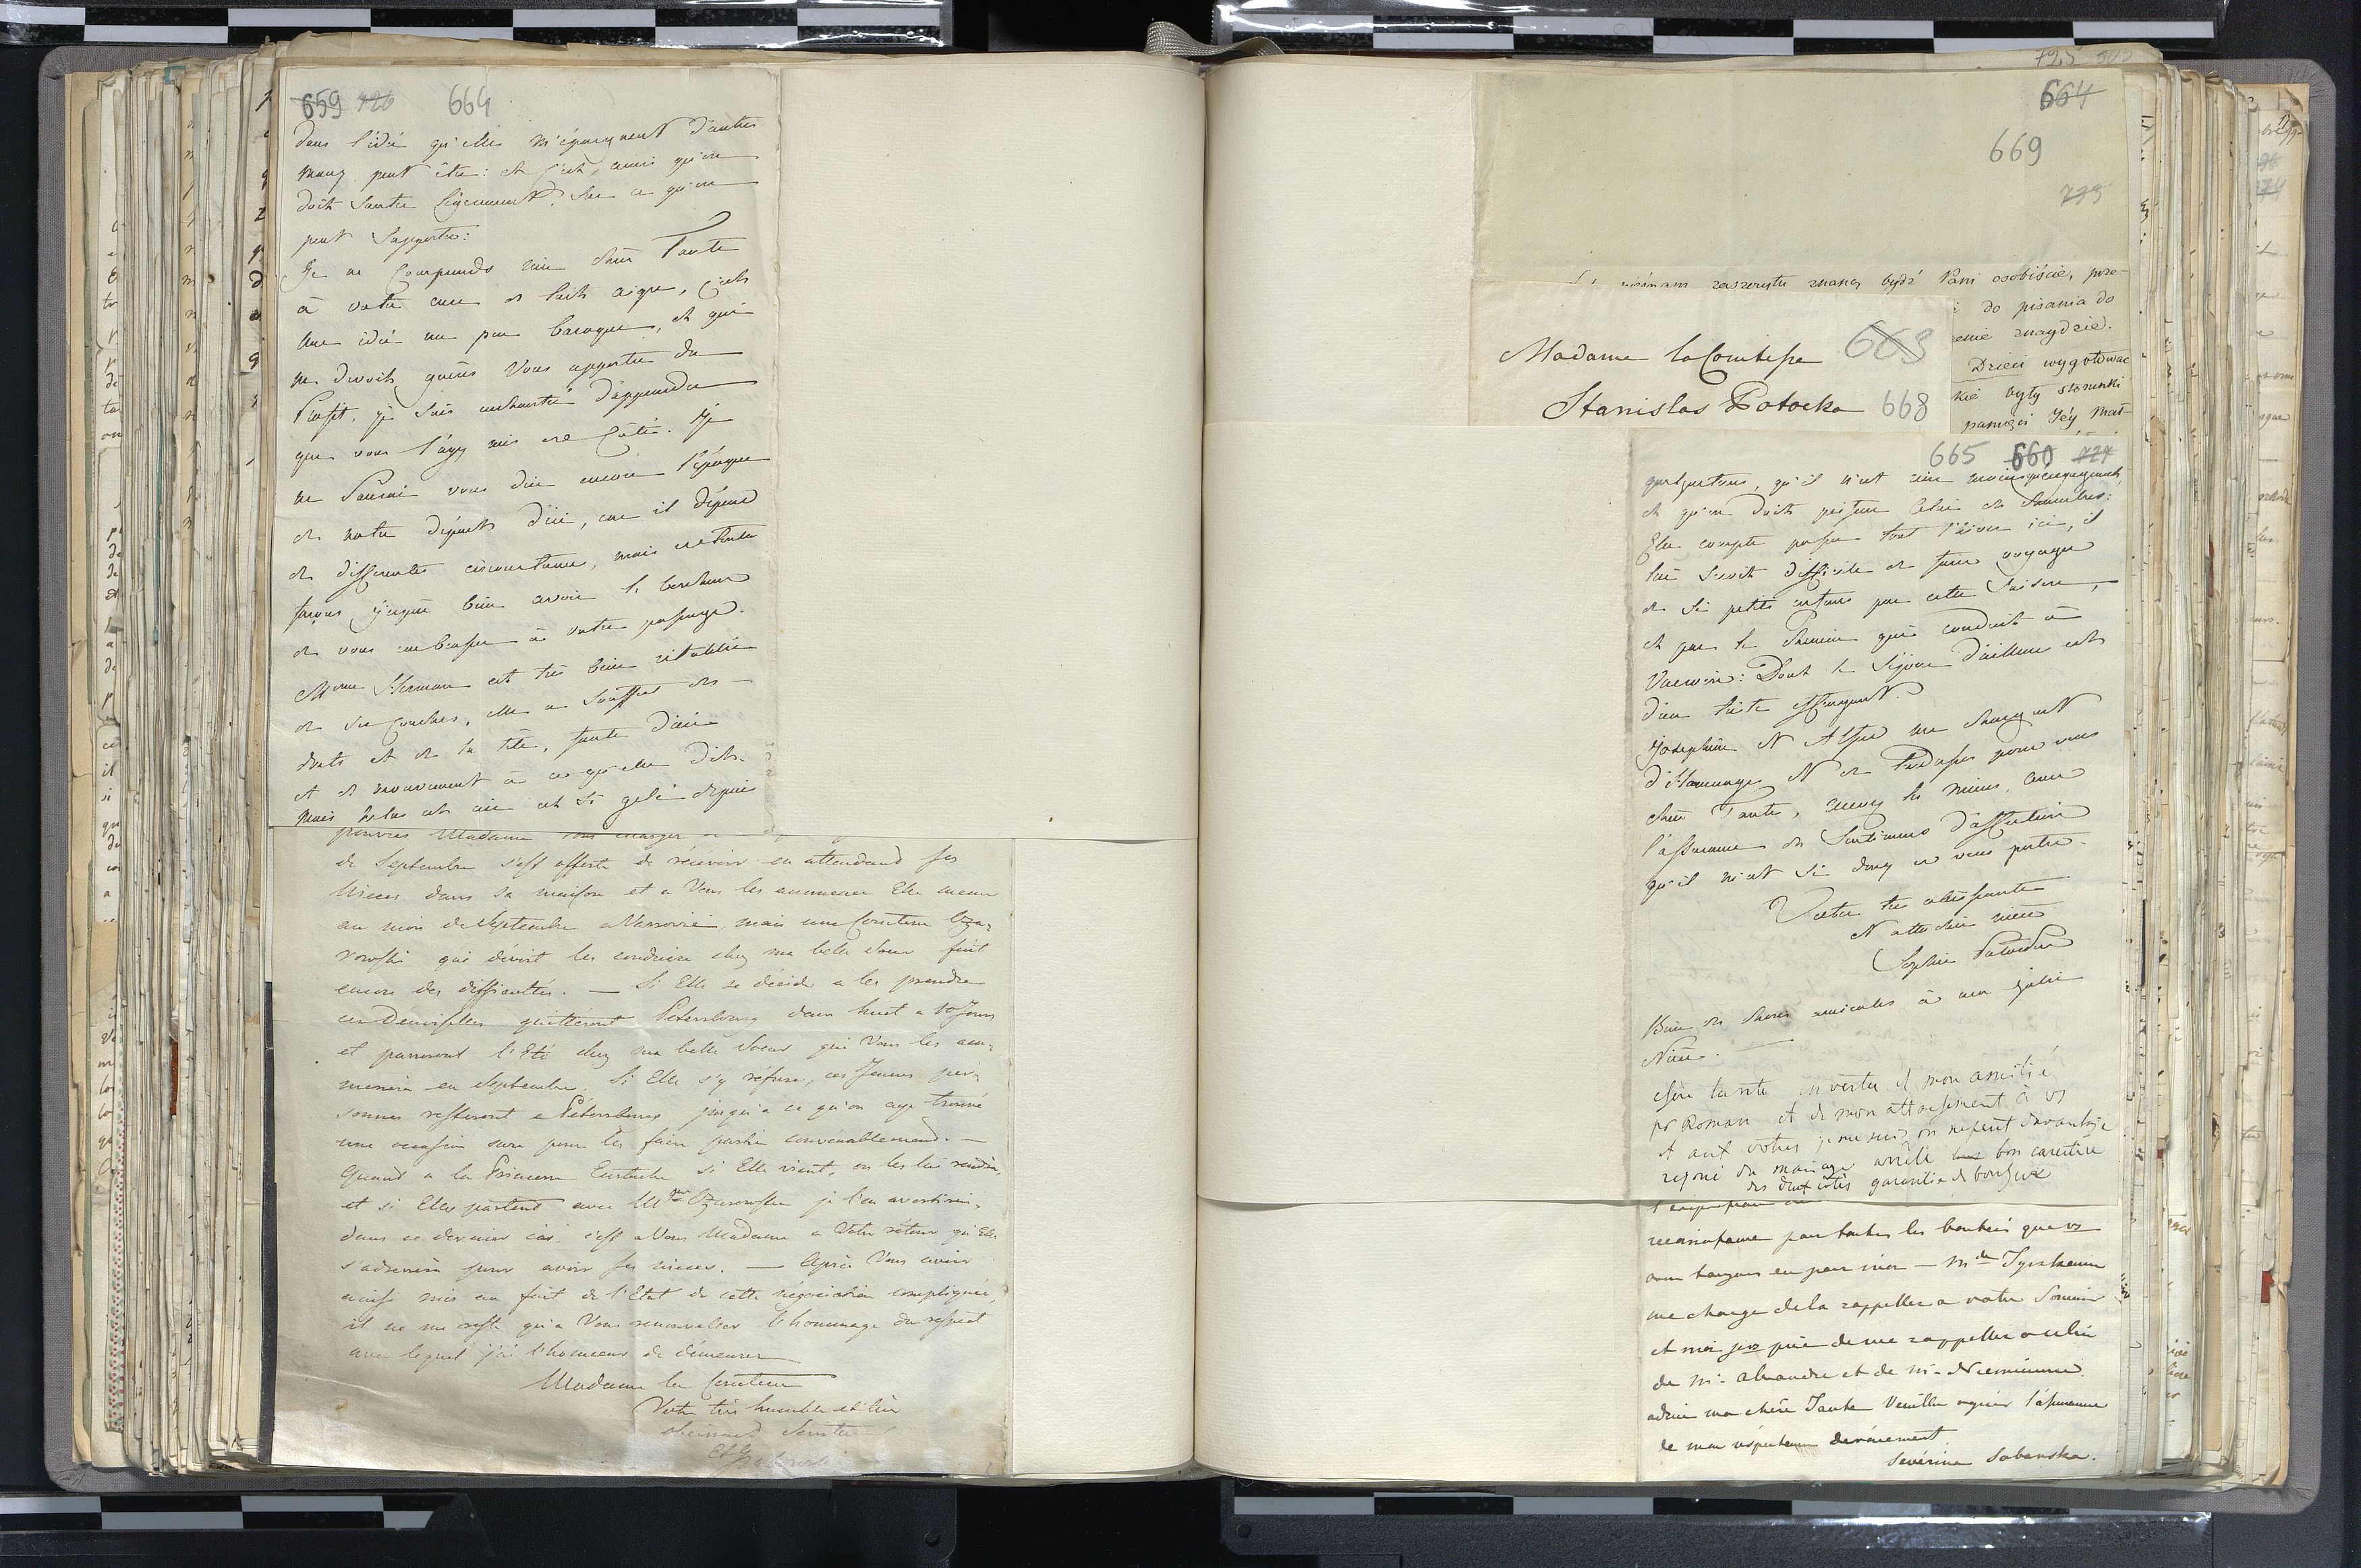 659 726 664
dans l'idée qu'elles m'épargnent d'autres
maux peut être: et c'est ainsi qu'on
doit sauter légèrement sur ce qu'on
peut supporter:
Je ne comprends rien chère Tante
à votre cure de laits aigre, c'est
une idée un peu baroque, et qui
ne devoit guères vous apporter du
Profit, je suis enchantée d'apprendre
que vous l'ayez mis de côté. Je
ne saurai vous dire encore l'époque
de notre départ d'ici, car il dépend
de differentes circonstances, mais de toute
façon j'espère bien avoir le bonheur
de vous embrasser à votre passage.
Mme Herman est très bien rétablie
de ses couches, elle a souffert des
dents et de la tête, faute d'air
et de mouvement à ce qu'elle dit.
mais hélas cet air est si gelé depuis
pouviez Madame vous charger
de Septembre s'est offerte de récevoir en attendant ses
Nieces dans sa maison et a Vous les ammener Elle meme
au mois de Septembre a Varsovie, mais une Comtesse Oza-
rowski qui dévoit les conduire chez ma belle Soeur fait
encore des difficultés. — Si Elle se décide a les prendre
ces Demoiselles quitteront Petersbourg dans huit a 10 Jours
et passeront l'Eté chez ma belle Soeur qui Vous les am-
menera en Septembre. Si Elle s'y réfuse, ces Jeunes per-
sonnes resteront a Pétersbourg jusqu'a ce qu'on aye trouvé
une occasion sure pour les faire partir convénablement. —
Quand a la Princesse Eustache si Elle vient, on les lui rendra,
et si Elles partent avec Mme Ozarowska je l'en avertirai,
dans ce dernier cas, c'est a Vous Madame a Votre rétour qu'Elle
s'adressera pour avoir ses nieces. — Après Vous avoir
ainsi mis au fait de l'Etat de cette négociation compliquée,
il ne me reste qu'a Vous renouveller l'hommage du respect
avec lequel j'ai l'honneur de démeurer
Madame la Comtesse
Votre très humble et très
obeissant Serviteur
725
664
669
725
zaszczytu znaną bydź Pani osobiście, prze-
do pisania do
znaydzie.
Dzieci wygotować
były stosunki
pamięci Jéy
Madame la Comtesse 663
Stanislas Potocka 668
665 660 727
quelquetems, qu'il n'est rien moins qu'engageant,
et qu'on doit préférer celui des chambres:
Elle compte passer tout l'hiver ici, il
lui seroit difficile de faire voyager
de si petits enfans par cette saison,
et par le chemin qui conduit à
Varsovie: Dont le séjour d'ailleurs est
d'un triste effrayant.
Josephine et Alfred me chargent
d'hommages et de tendresses pour vous
chère Tante, agréez les miens, avec
l'assurance des sentimens d'affection
qu'il m'est si doux de vous porter.
Votre très obéissante
et attachée nièce
Sophie
Bien des choses amicales à ma jolie
Nièce.
chère tante en vertu d mon amitié
pr Roman et de mon attachement à vs
et aux votres, je me suis on ne peut davantage
rejoui du mariage arrêté bon caractère
des deux cotés garantie de bonheur
reconnaissance pour toutes les bontés que vs
avez toujours eu pour moi — Mde Tyszkiewicz
me charge de la rappeller a votre Souvenir
et moi je vs prie de me rappeller a celui
de Mr Alexandre et de Mr
adieu ma chère Tante Veuillez agréer l'assurance
de mon respectueux devouement
Sévérine Sobanska.